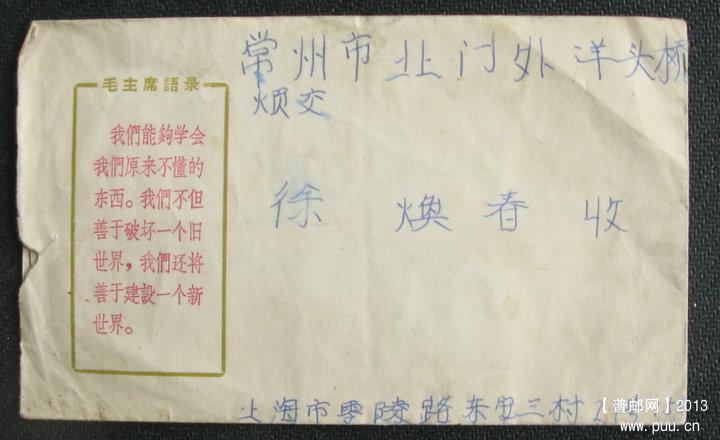 毛主席語录
我們能夠学会
我們原来不懂的
东西。我們不但
善于破坏一个旧
世界，我們还将
善于建設一个新
世界。
常州市北门外洋头桥
烦交
徐焕春收
上海市零陵路东安三村
【普邮网】2013
www.puu.cn